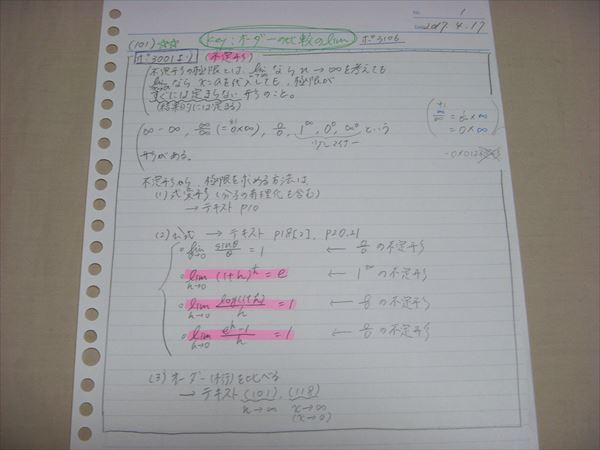 No. 1
Date 2017. 4. 17
(101) ☆☆ key:オーダーの比較のlim ポ3106
ポ3001より (不定形)
不定形の極限とは、lim n→∞ なら n→∞を考えても
なら x=aを代入しても、極限が
すぐには定まらない形のこと。
(結果的には定まる)
∞-∞, ∞/∞ (= 0×∞), 0/0, 1^∞, 0^0, ∞^0 という
形がある。
∞/∞ = 1/∞ × ∞
= 0×∞
不定形から、極限を求める方法は
(1) 式変形 (分子の有理化も含む)
→ テキスト p10
(2) 公式 → テキスト p18[2], p20.21
lim θ→0 sinθ/θ = 1 ← 0/0 の不定形
lim h→0 (1+h)^(1/h) = e ← 1^∞ の不定形
lim h→0 log(1+h)/h = 1 ← 0/0 の不定形
lim h→0 (e^h - 1)/h = 1 ← 0/0 の不定形
(3) オーダー(桁)を比べる
→ テキスト (101), (118)
n→∞ x→∞
(x→0)